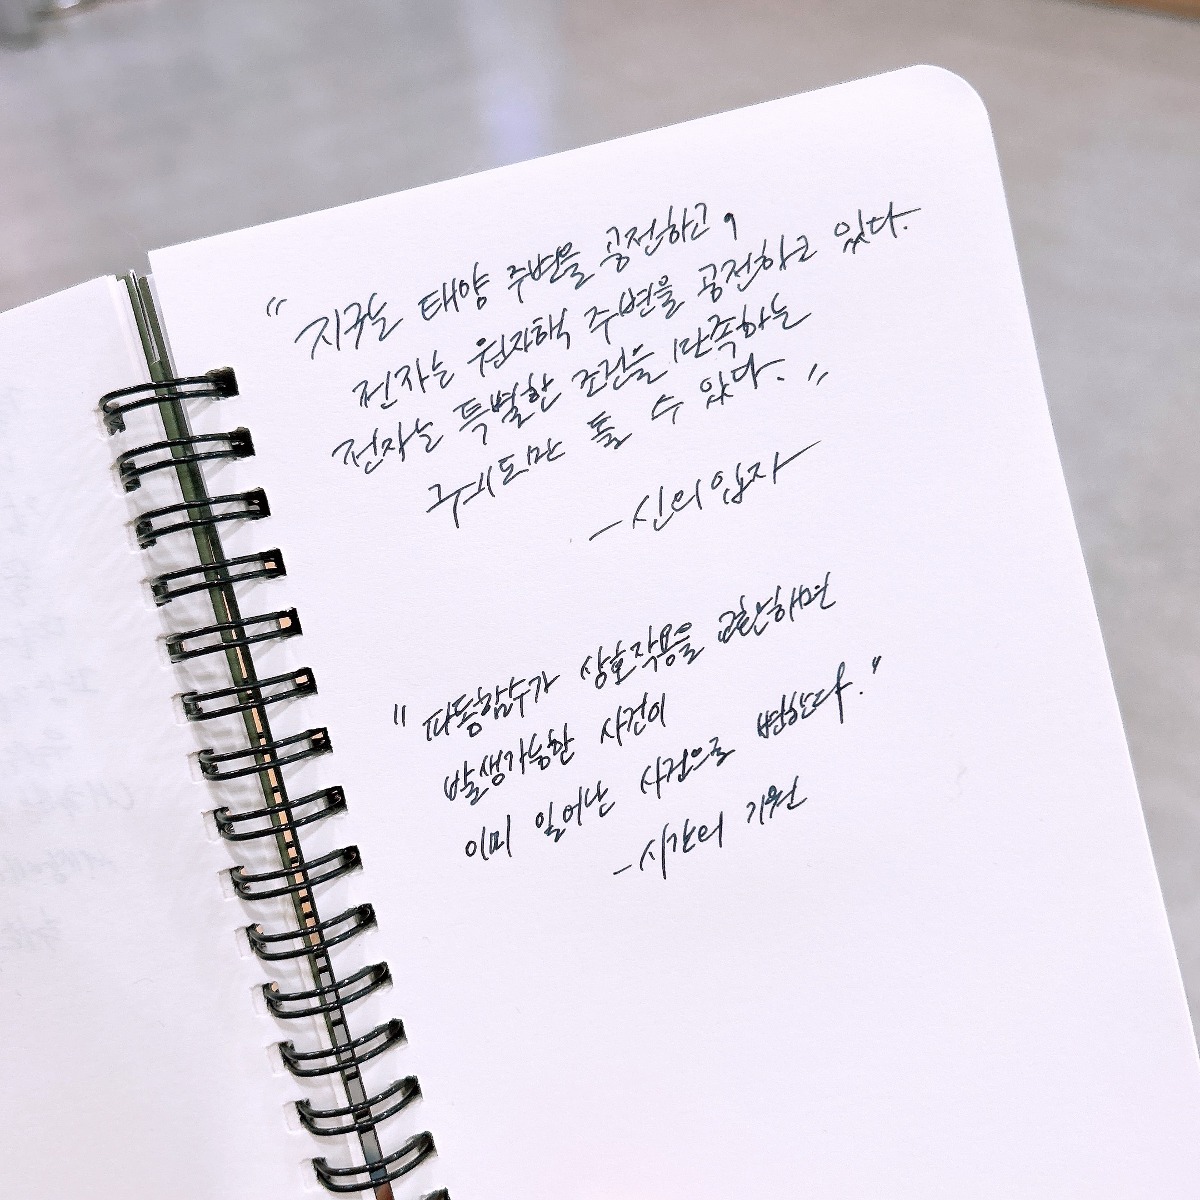 "지구는 태양 주변을 공전하고,
전자는 원자핵 주변을 공전하고 있다.
전자는 특별한 조건을 만족하는
궤도만 돌 수 있다."
-신의입자
"파동함수가 상호작용을 교환해면
발생가능한 사건이
이미 일어난 사건으로 변한다."
-시간의 기원